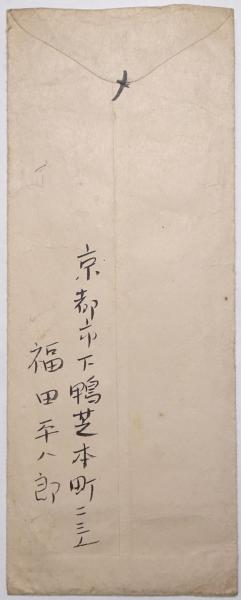 〆
京都市下鴨芝本町二三
福田平八郎